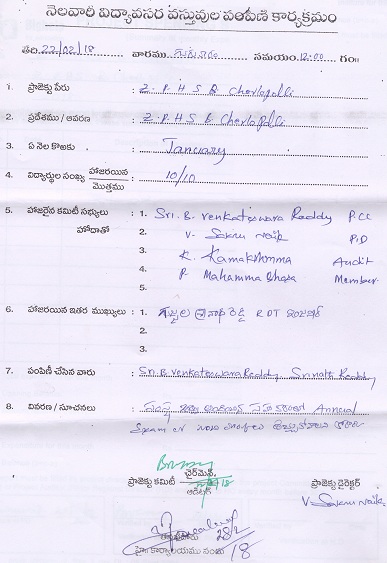 నెలవారీ విద్యావసర వస్తువుల పంపిణీ కార్యక్రమం
తేది. 22/02/18 వారము. గురువారం సమయం. 12:00 గం॥
1. ప్రాజెక్టు పేరు : Z. P. H S B Cherlopalli
2. ప్రదేశము / ఆవరణ : Z. P H S B Cherlopalli
3. ఏ నెల కొఱకు : January
4. విద్యార్థుల సంఖ్య హాజరయిన / మొత్తము : 10/10
5. హాజరైన కమిటీ సభ్యులు హోదాతో : 1. Sri. B. Venkateswara Reddy P.CC
2. V. Sakru Naik P.D
3. K. Kamakshmma Audit
4. P Mahamma Bhasa Member
5.
6. హాజరయిన ఇతర ముఖ్యులు : 1. రెడ్డి RDT
2.
3.
7. పంపిణీ చేసిన వారు : Sri. B. Venkateswara Reddy, Srinath Reddy
8. వివరణ / సూచనలు : Annual
ప్రాజెక్టు కమిటీ చైర్మెన్, ప్రాజెక్టు డైరెక్టర్
ఆడిటర్
V- Sakru Naik
28/2/18